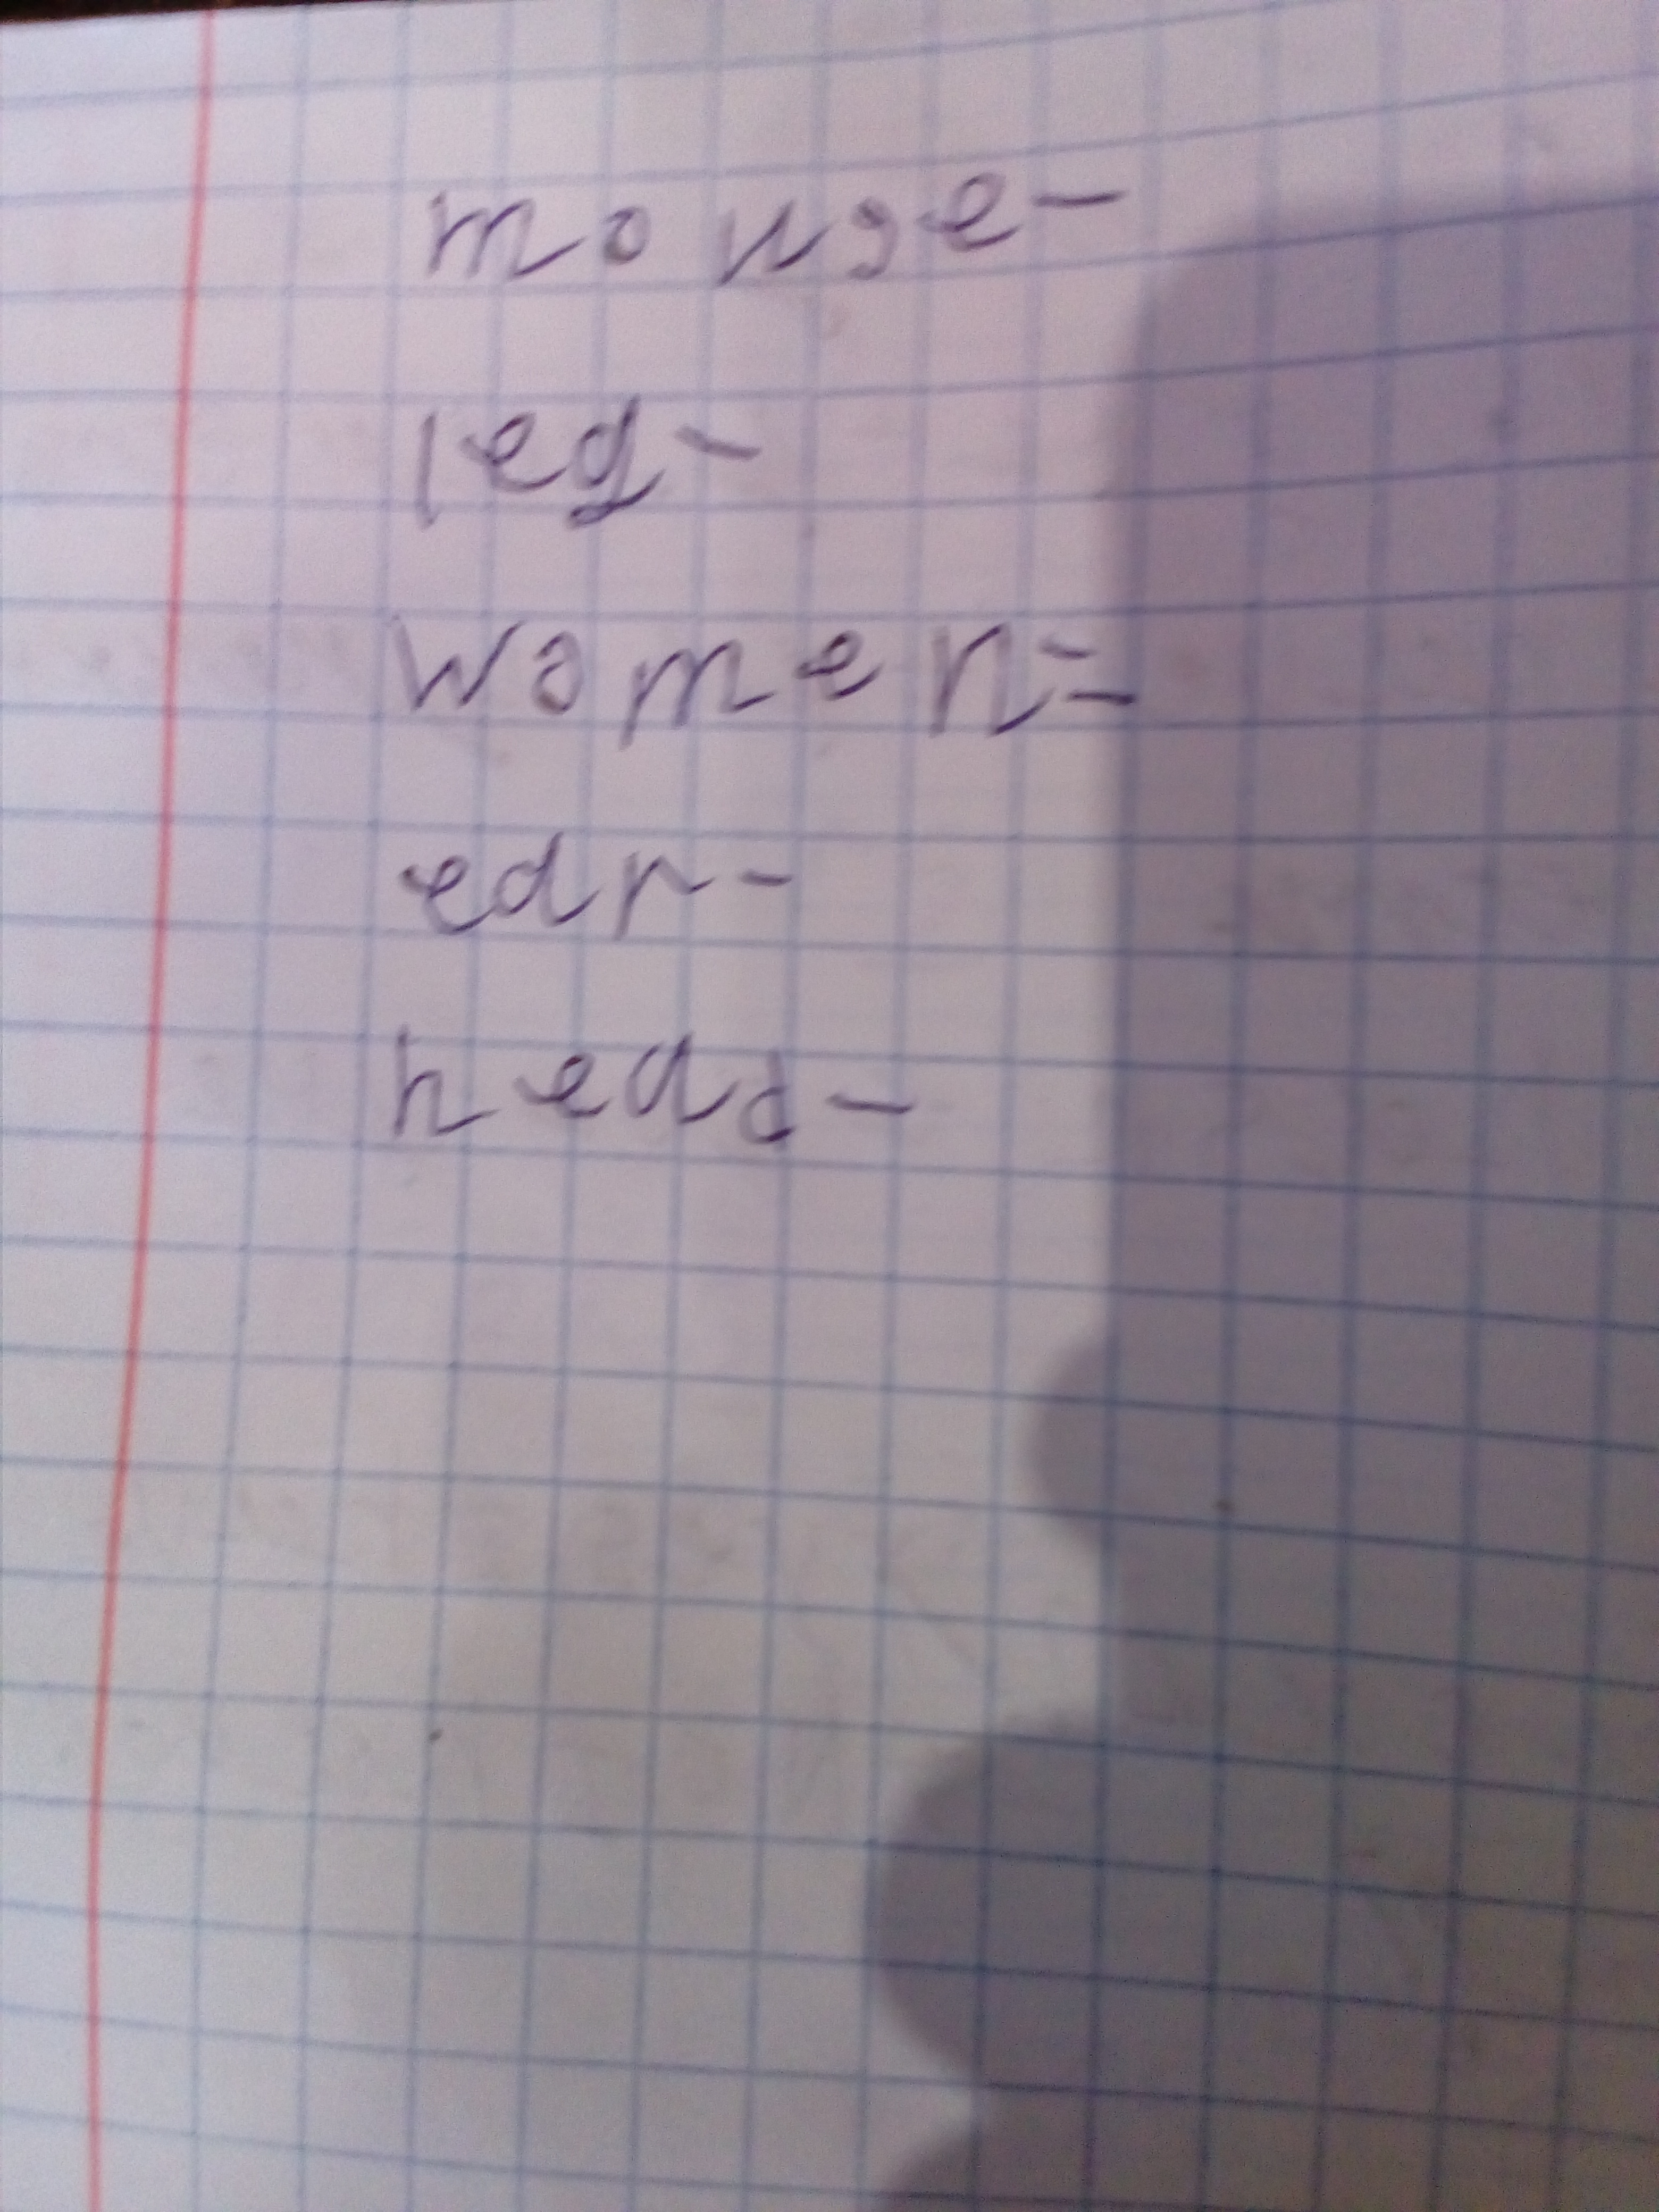 mouse-
leg-
women=
ear-
head-